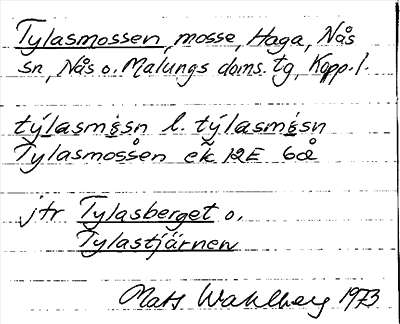 Tylasmossen, mosse, Haga, Nås
sn, Nås o. Malungs doms. tg, Kopp. l.
týlasms̀sn l. týlasm̀sn
Tylasmossen ek 12E 6a
jfr Tylasberget o.
Tylastjärnen
Mats Wahlberg 1973